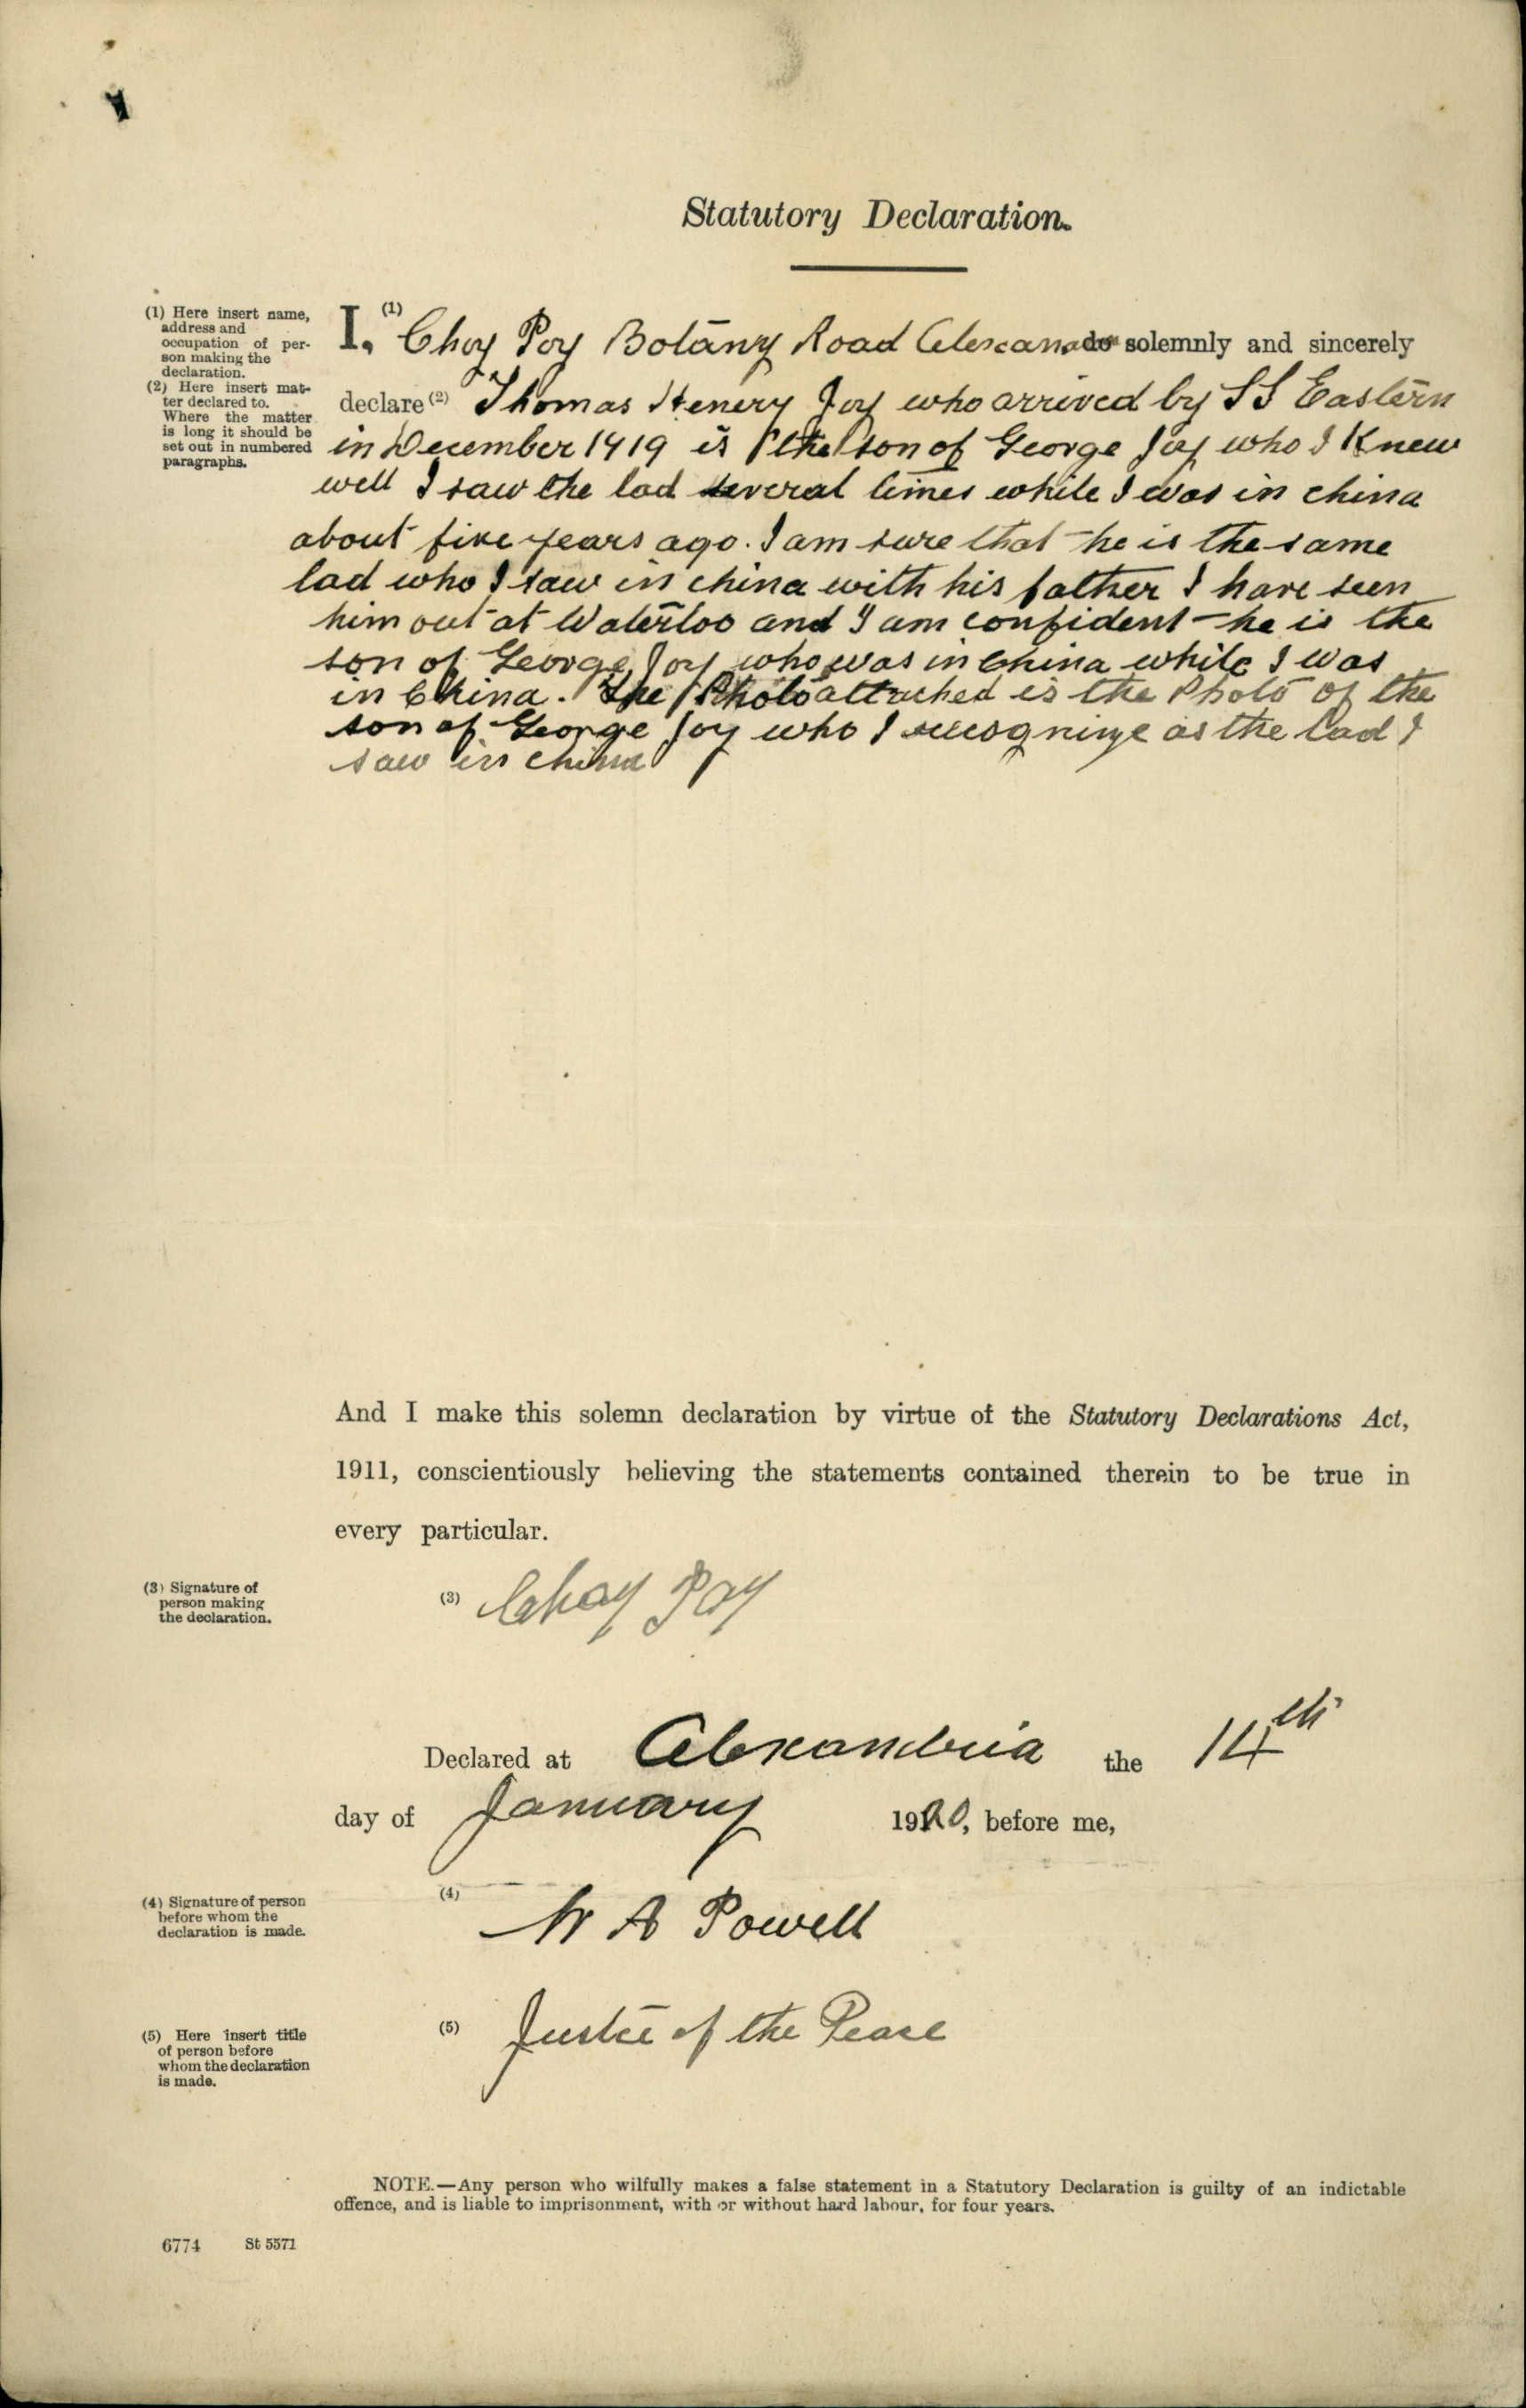 Statutory Declaration.
(1) Here insert name,
address and
occupation of per-
son making the
declaration.
(2) Here insert mat-
ter declared to.
Where the matter
is long it should be
set out in numbered
paragraphs.
I, (1) Choy Poy Botany Road do solemnly and sincerely
declare (2) Thomas Henery Joy who arrived by SS Eastern
in December 1919 is the son of George Joy who I Knew
well I saw the lad several times while I was in china
about five years ago. I am sure that he is the same
lad who I saw in china with his father I have seen
him out at Waterloo and I am confident he is the
son of George Joy who was in China while I was
in China. The Photo attached is the Photo of the
son of George Joy who I recognize as the lad I
saw in china
And I make this solemn declaration by virtue of the Statutory Declarations Act,
1911, conscientiously believing the statements contained therein to be true in
every particular.
(3) Signature of
person making
the declaration.
(3) Choy Poy
Declared at Alexandria the 14th
day of January 1920, before me,
(4) Signature of person
before whom the
declaration is made.
(4) A Powell
(5) Here insert title
of person before
whom the declaration
is made.
(5) Justice of the Peace
NOTE.—Any person who wilfully makes a false statement in a Statutory Declaration is guilty of an indictable
offence, and is liable to imprisonment, with or without hard labour, for four years.
6774 St 5571